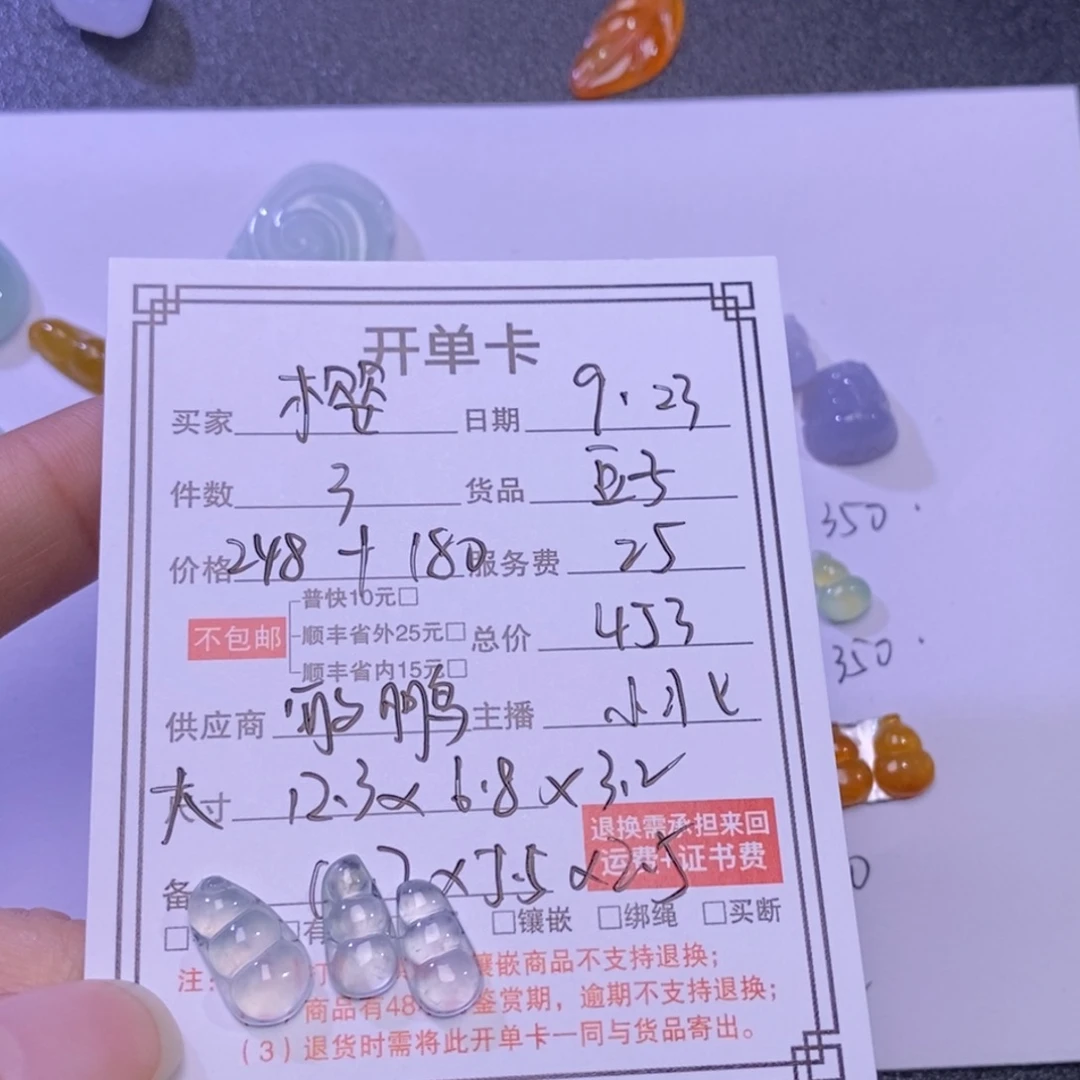 开单卡
买家 樱 日期 9.23
件数 3 货品 豆子
价格 248 + 180 服务费 25
普快10元□
不包邮 顺丰省外25元□ 总价 453
顺丰省内15元□
供应商 鹏 主播 小
大寸 12.3 x 6.8 x 3.2
退换需承担来回
运费+证书费
备 x 5.5 x 2.5
□ 有 □镶嵌 □绑绳 □买断
注: 镶嵌商品不支持退换;
商品有48 鉴赏期,逾期不支持退换;
(3)退货时需将此开单卡一同与货品寄出。
350
350